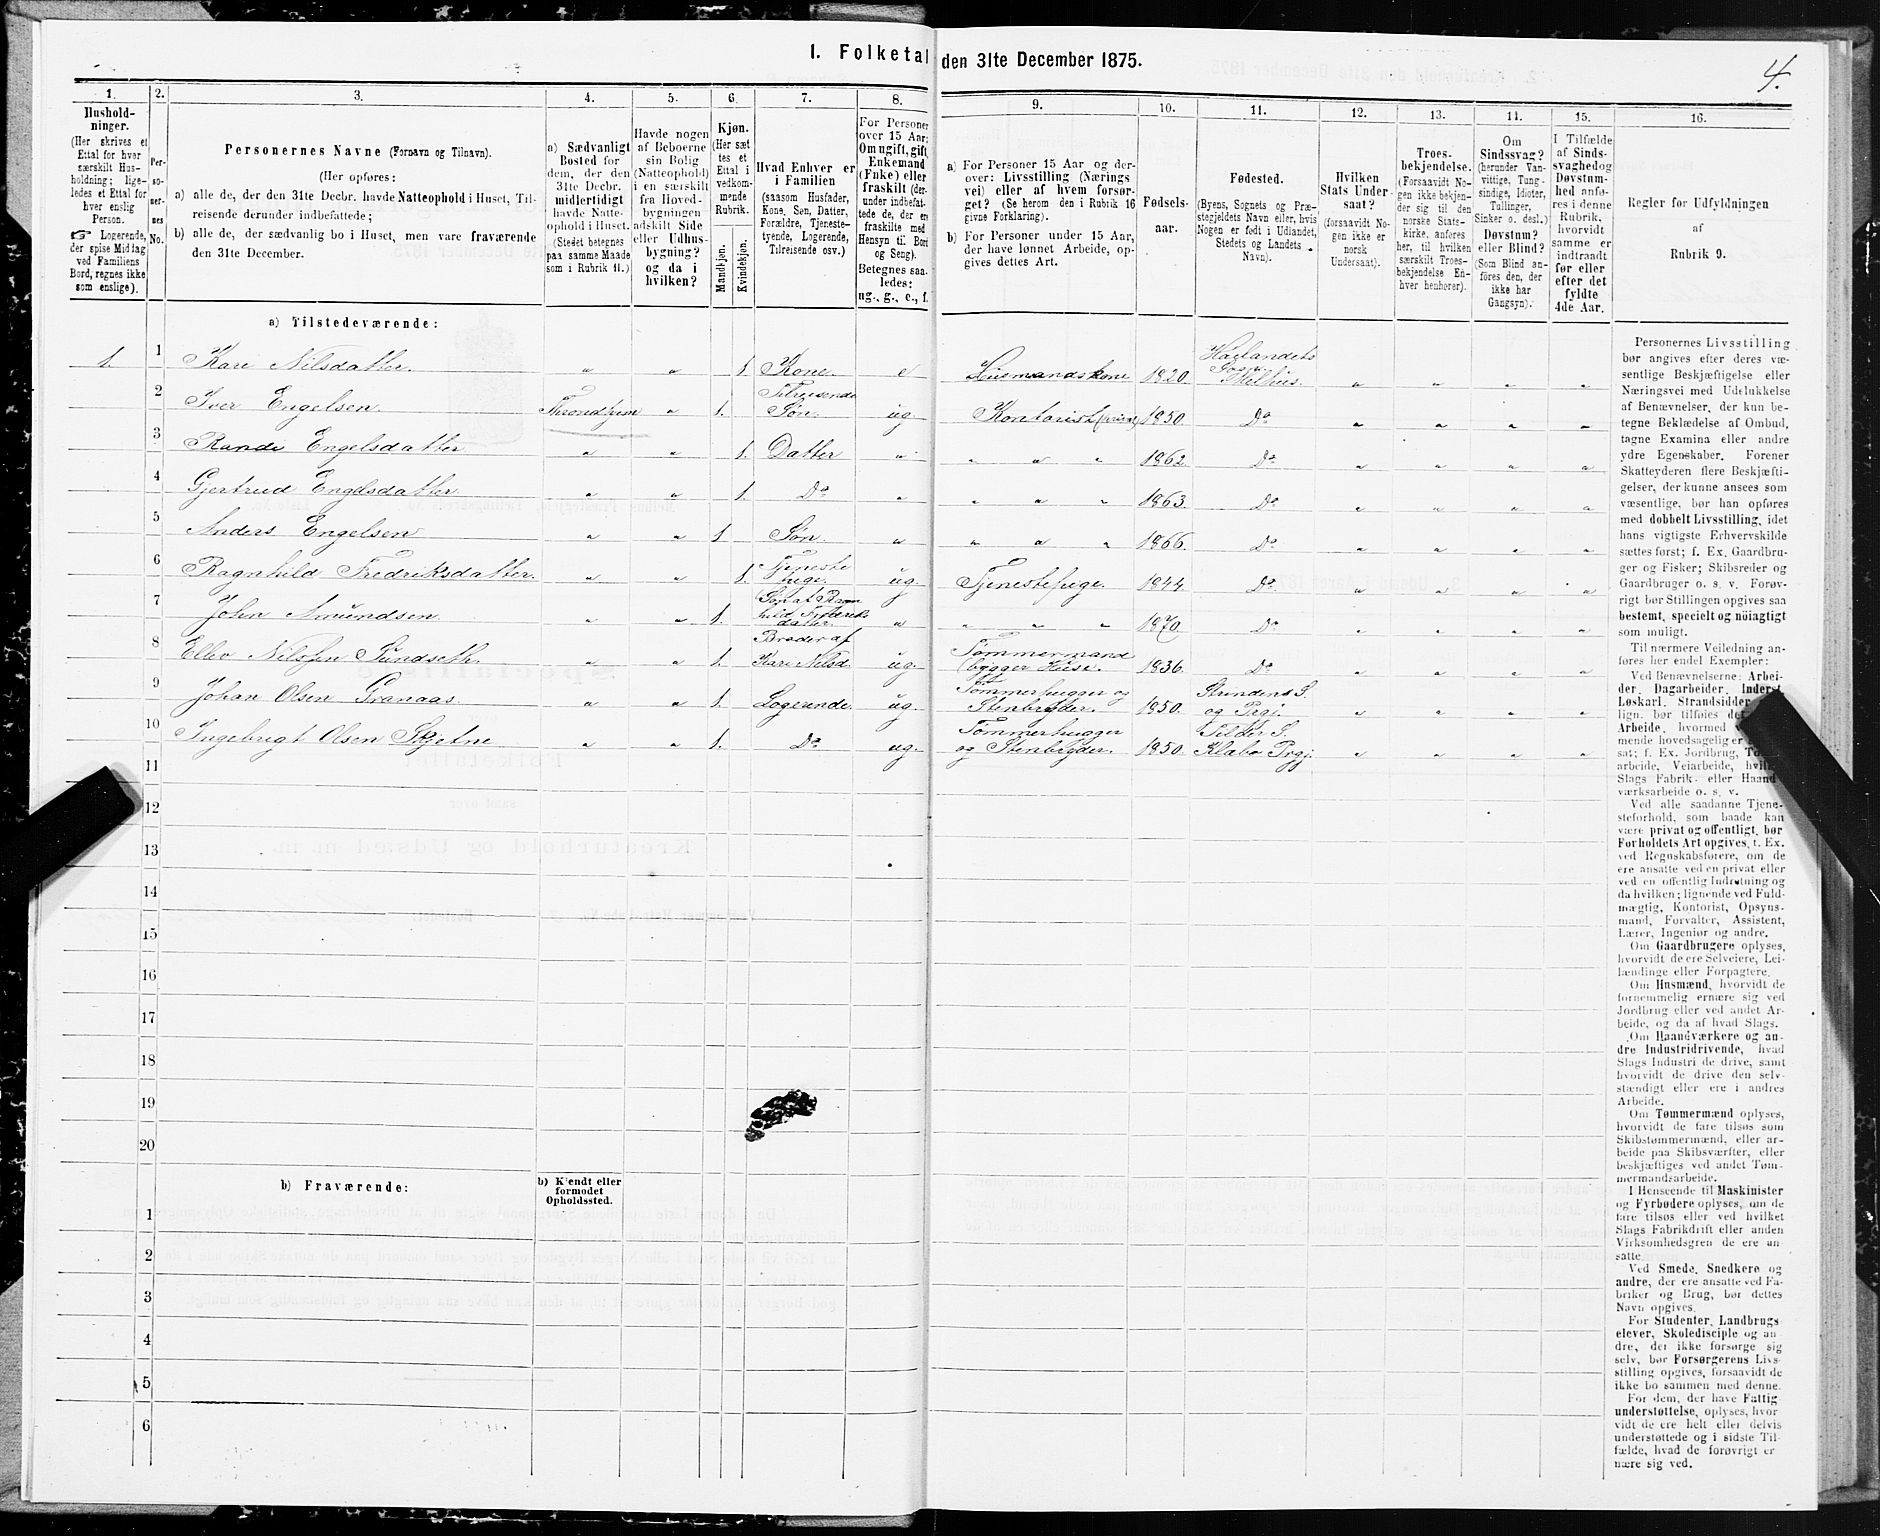 I. Folketal den 31te December 1875.
4.
1. 2. 3. 4. 5. 6. 7. 8. 9. 10. 11. 12. 13. 14. 15. 16.
Husholdninger.
(Her skrives et
Ettal for hver
særskilt Hus-
holdning; lige-
ledes et Ettal for
hver enslig
Person.
☞ Logerende,
der spise Middag
ved Familiens
Bord, regnes ikke
som enslige).
Per-
so-
ner-
nes
No.
Personernes Navne (Fornavn og Tilnavn).
(Her opføres:
a) alle de, der den 31te Decbr. havde Natteophold i Huset, Til-
reisende derunder indbefattede;
b) alle de, der sædvanlig bo i Huset, men vare fraværende
den 31te December.
a) Sædvanligt
Bosted for
dem, der den
31te Decbr.
midlertidigt
havde Natte-
ophold i Huset.
(Stedet betegnes
paa samme Maade
som i Rubrik 11.)
Havde nogen
af Beboerne
sin Bolig
(Natteophold)
i en særskilt
fra Hoved-
bygningen
adskilt Side
eller Udhus-
bygning?
og da i
hvilken?
Kjøn.
(Her sæt
tes et
Ettal i
vedkom-
mende
Rubrik.
Mandkjøn.
Kvindekjøn.
Hvad Enhver er
i Familien
(saasom Husfader,
Kone, Søn, Datter,
Forældre, Tjeneste-
tyende, Logerende,
Tilreisende osv.)
For Personer
over 15 Aar:
Om ugift, gift,
Enkemand
(Enke) eller
fraskilt (der-
under indbefat-
tede de, der ere
fraskilte med
Hensyn til Bord
og Seng).
Betegnes saa-
ledes:
ug., g., e., f.
a) For Personer 15 Aar og der-
over: Livsstilling (Nærings
vei) eller af hvem forsør-
get? (Se herom den i Rubrik 16
givne Forklaring).
b) For Personer under 15 Aar,
der have lønnet Arbeide, op-
gives dettes Art.
Fødsels-
aar.
Fødested.
(Byens, Sognets og Præ-
stegjeldets Navn eller, hvis
Nogen er født i Udlandet,
Stedets og Landets
Navn).
Hvilken
Stats Under-
saat?
(forsaavidt No-
gen ikke er
norsk
Undersaat).
Troes-
bekjendelse.
(Forsaavidt No-
gen ikke bekjen-
der sig til den
norske Stats-
kirke, anføres
her, til hvilken
særskilt Troes-
bekjendelse En-
hver henhører).
Om
Sindssvag?
(herunder Van-
vittige, Tung-
sindige, Idioter,
Tullinger,
Sinker o. desl.)
Døvstum?
eller Blind?
(Som Blind an-
føres den, der
ikke har
Gangsyn).
I Tilfælde
af Sinds-
svaghed og
Døvstum-
hed anfø-
res i denne
Rubrik,
hvorvidt
samme er
indtraadt
før eller
efter det
fyldte
4de Aar.
Regler for Udfyldningen
af
Rubrik 9.
a) Tilstedeværende:
1. 1 Kari Nilsdatter. " " 1. Kone. e Husmandskone 1820. Høilandets Sogn Melhus. " " " "
2 Iver Engelsen. Throndhjem " 1. Tilreisende Søn. ug. Kontorist (privat) 1850. Do " " " "
3 Randi Engelsdatter " " 1. Datter " " " " 1862. Do " " " "
4 Gjertrud Engelsdatter " " 1. Do " " " " 1863. Do " " " "
5 Anders Engelsen " " 1 Søn. " " " " 1866. Do " " " "
6 Ragnhild Fredriksdatter. " " 1. Tjeneste pige. ug. Tjenestepige. 1844. Do " " " "
7 John Amundsen. " " 1. Søn af Ragnhild Frederiksdatter. " " " " 1870. Do " " " "
8 Nilssen Sundseth. " " 1. Broder af Kari Nilsd. ug. Tømmermand (bygger Huse. 1836. Do " " " "
9 Johan Olsen Granaas. " " 1. Logerende. ug. Tømmerhugger og Stenbryder. 1850. Strindens S. og Prgj. " " " "
10 Ingebrigt Olsen Skjetne " " 1. Do ug. Tømmerhugger og Stenbryder. 1850. Tiller S. Klæbo Prgj. " " " "
11
12
13
14
15
16
17
18
19
20
b) Fraværende:
b) Kjendt eller
formodet
Opholdssted.
1
2
3
4
5
6
Personernes Livsstilling
bør angives efter deres væ-
sentlige Beskjæftigelse eller
Næringsvei med Udelukkelse
af Benævnelser, der kun be-
tegne Beklædelse af Ombud,
tagne Examina eller andre
ydre Egenskaber. Forener
Skatteyderen flere Beskjæfti-
gelser, der kunne ansees som
væsentlige, bør han opføres
med dobbelt Livsstilling, idet
hans vigtigste Erhvervskilde
sættes først; f. Ex. Gaardbru-
ger og Fisker; Skibsreder og
Gaardbruger o. s. v. Forøv-
rigt bør Stillingen opgives saa
bestemt, specielt og nöiagtigt
som muligt.
Til nærmere Veiledning an-
føres her endel Exempler:
Ved Benævnelserne: Arbei-
der, Dagarbeider, Inderst,
Løskarl, Strandsidder
lign. bør tilføies det
Arbeide, hvormed
mende hovedsagelig er
sat; f. Ex. Jordbrug,
arbeide, Veiarbeide, hvilket
Slags Fabrik- eller Haand-
værksarbeide o. s. v.
Ved alle saadanne Tjene-
steforhold, som baade kan
være privat og offentligt, bør
Forholdets Art opgives, f. Ex.
ved Regnskabsførere, om de
ere ansatte ved en privat eller
ved en offentlig Indretning og
da hvilken; lignende ved Fuld-
mægtig, Kontorist, Opsyns-
mand, Forvalter, Assistent,
Lærer, Ingeniør og andre.
Om Gaardbrugere oplyses,
hvorvidt de ere Selveiere, Lei-
lændinge eller Forpagtere.
Om Husmænd, hvorvidt de
fornemmelig ernære sig ved
Jordbrug eller ved andet Ar-
beide, og da af hvad Slags.
Om Haandværkere og an-
dre Industridrivende, hvad
Slags Industri de drive, samt
hvorvidt de drive den selv-
stændigt eller ere i andres
Arbeide.
Om Tømmermænd oplyses,
hvorvidt de fare tilsøs som
Skibstømmermænd, eller ar-
beide paa Skibsværfter, eller
beskjæftiges ved andet Tøm-
mermandsarbeide.
I Henseende til Maskinister
og Fyrbødere oplyses, om de
fare tilsøs eller ved hvilket
Slags Fabrikdrift eller anden
Virksomhedsgren de ere an-
satte.
Ved Smede, Snedkere og
andre, der ere ansatte ved Fa-
briker og Brug, bør dettes
Navn opgives.
For Studenter, Landbrugs-
elever, Skoledisciple og an-
dre, der ikke forsørge sig
selv, bør Forsørgerens Livs-
stilling opgives, forsaavidt de
ikke bo sammen med denne.
For dem, der have Fattig-
understøttelse, oplyses, hvor-
vidt de ere helt eller delvis
understøttede og i sidste Til-
fælde, hvad de forøvrigt er-
nære sig ved.